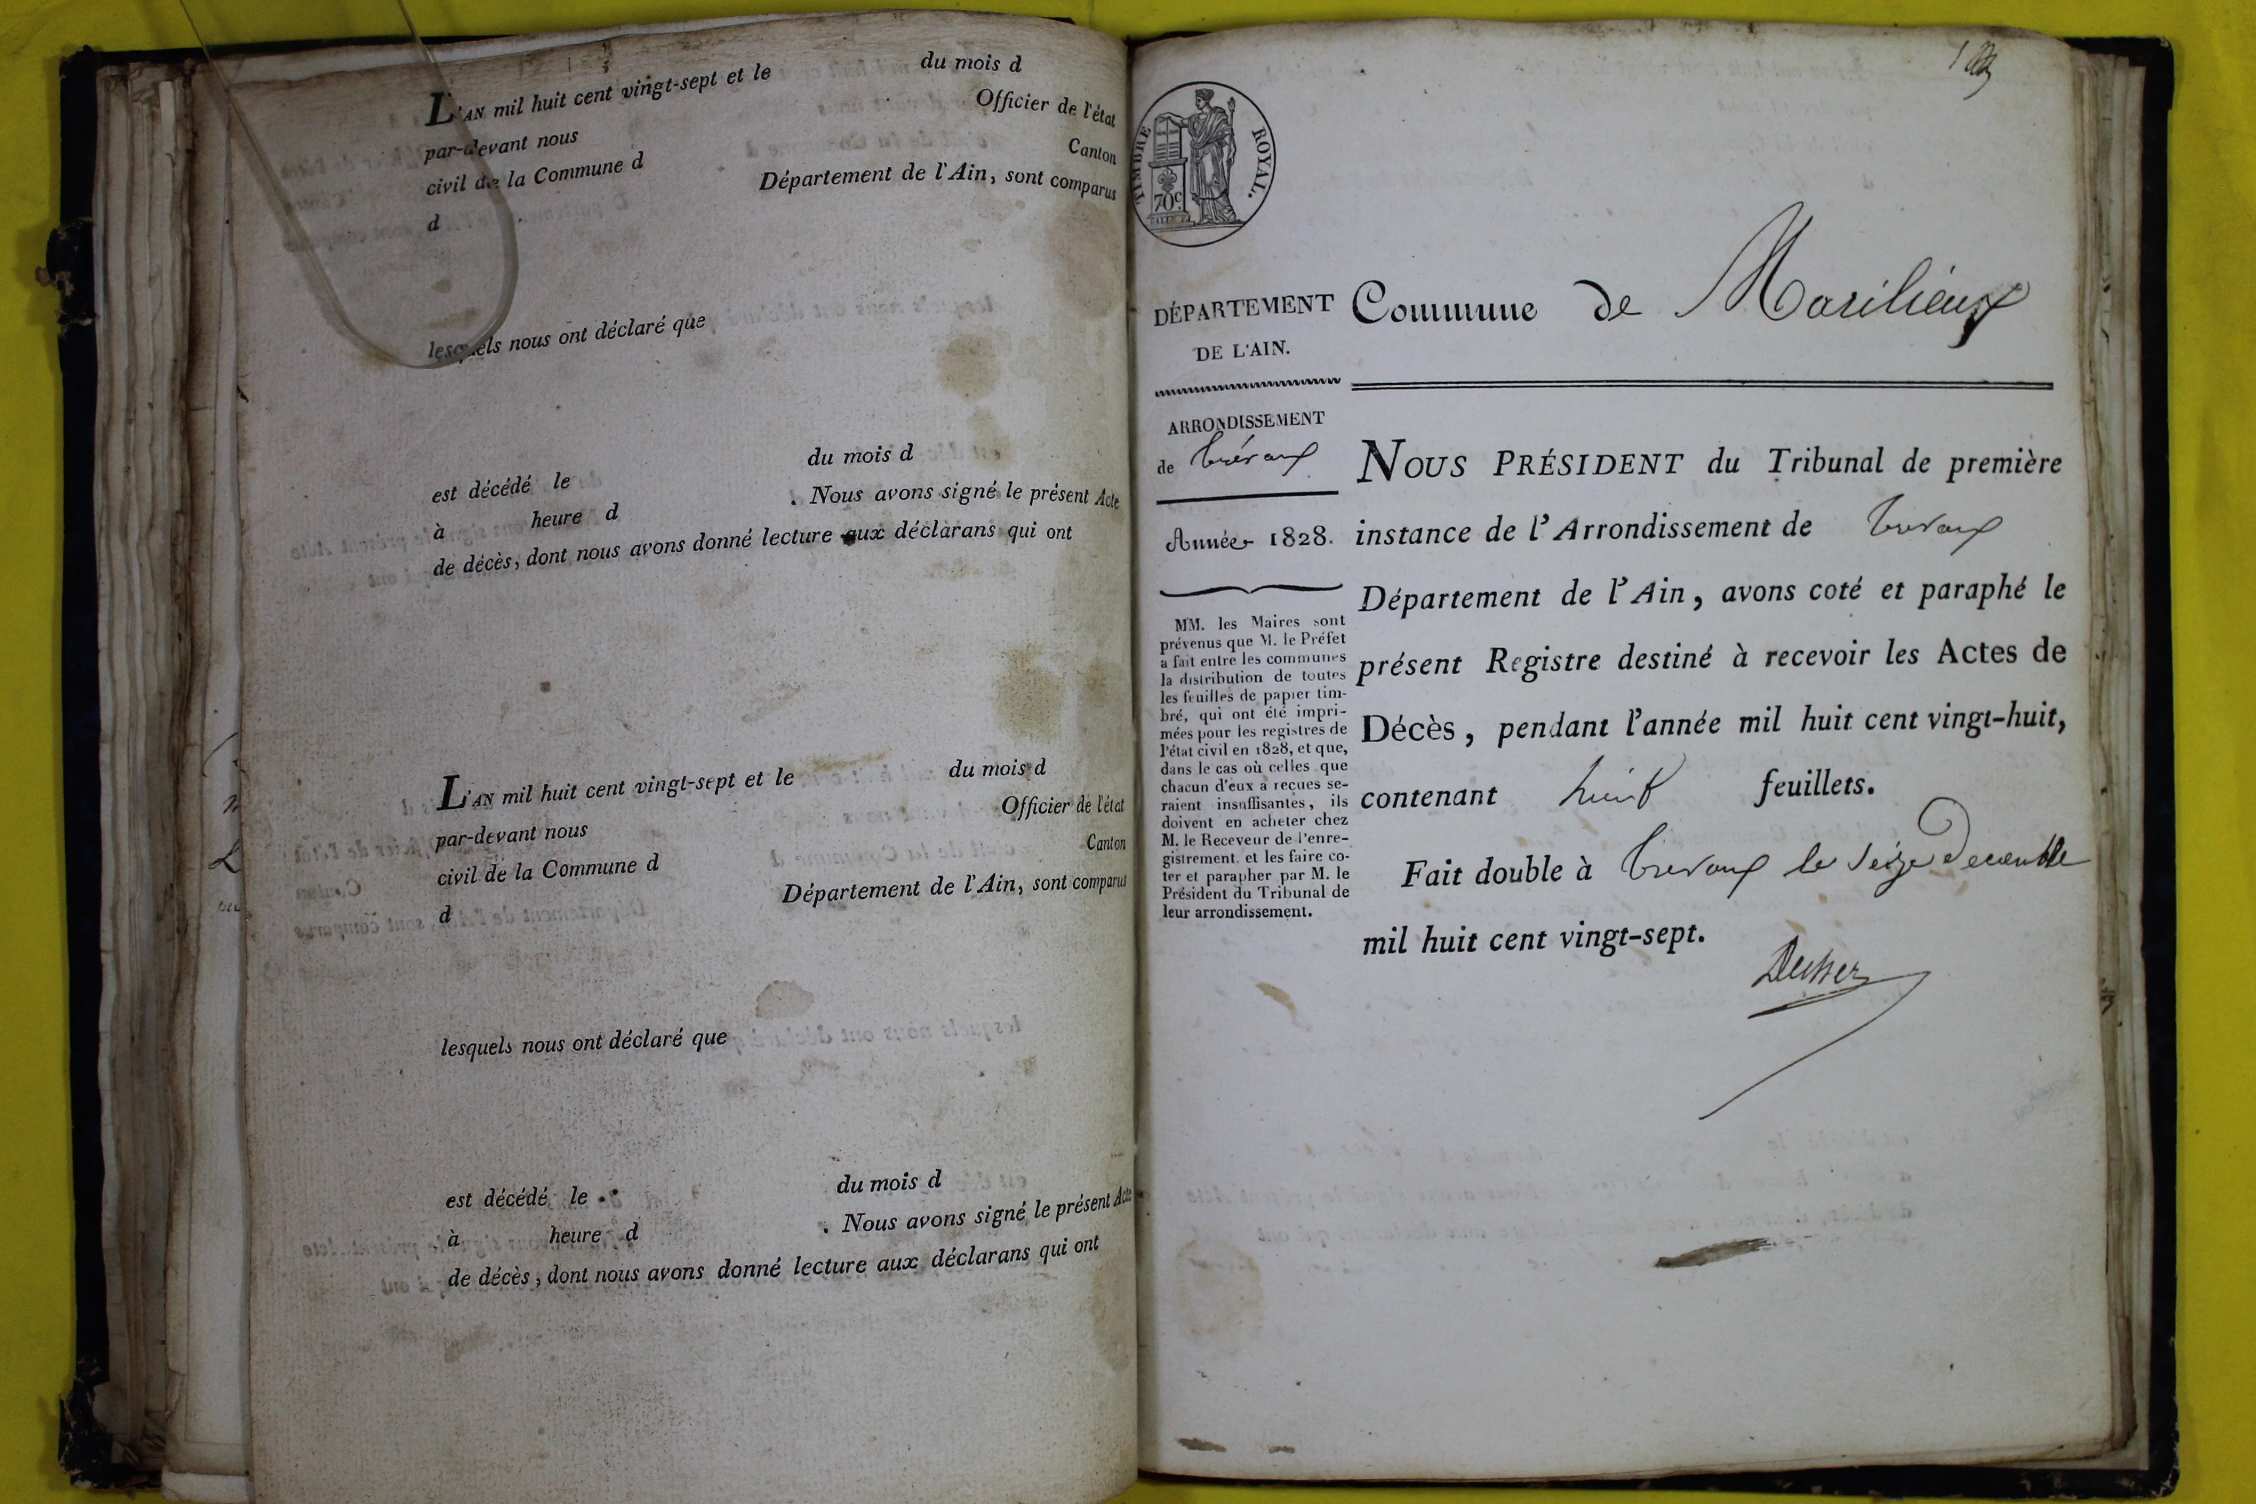 L'AN mil huit cent vingt-sept et le du mois d
par-devant nous Officier de l'état
civil de la Commune d Canton
d Département de l'Ain, sont comparus
lesquels nous ont déclaré que
est décédé le du mois d
à heure d . Nous avons signé le présent Acte
de décès, dont nous avons donné lecture aux déclarans qui ont
L'AN mil huit cent vingt-sept et le du mois d
par-devant nous Officier de l'état
civil de la Commune d Canton
d Département de l'Ain, sont comparus
lesquels nous ont déclaré que
est décédé le du mois d
à heure d . Nous avons signé le présent Acte
de décès, dont nous avons donné lecture aux déclarans qui ont
TIMBRE ROYAL.
70c.
DÉPARTEMENT
DE L'AIN.
ARRONDISSEMENT
de Trévoux
Année 1828.
MM. les Maires sont
prévenus que M. le Préfet
a fait entre les communes
la distribution de toutes
les feuilles de papier tim-
bré, qui ont été impri-
mées pour les registres de
l'état civil en 1828, et que,
dans le cas où celles que
chacun d'eux a reçues se-
raient insuffisantes, ils
doivent en acheter chez
M. le Receveur de l'enre-
gistrement, et les faire co-
ter et parapher par M. le
Président du Tribunal de
leur arrondissement.
Commune de Marilieux
NOUS PRÉSIDENT du Tribunal de première
instance de l'Arrondissement de Trevoux
Département de l'Ain, avons coté et paraphé le
présent Registre destiné à recevoir les Actes de
Décès, pendant l'année mil huit cent vingt-huit,
contenant huit feuillets.
Fait double à Trevoux le seize Decembre
mil huit cent vingt-sept.